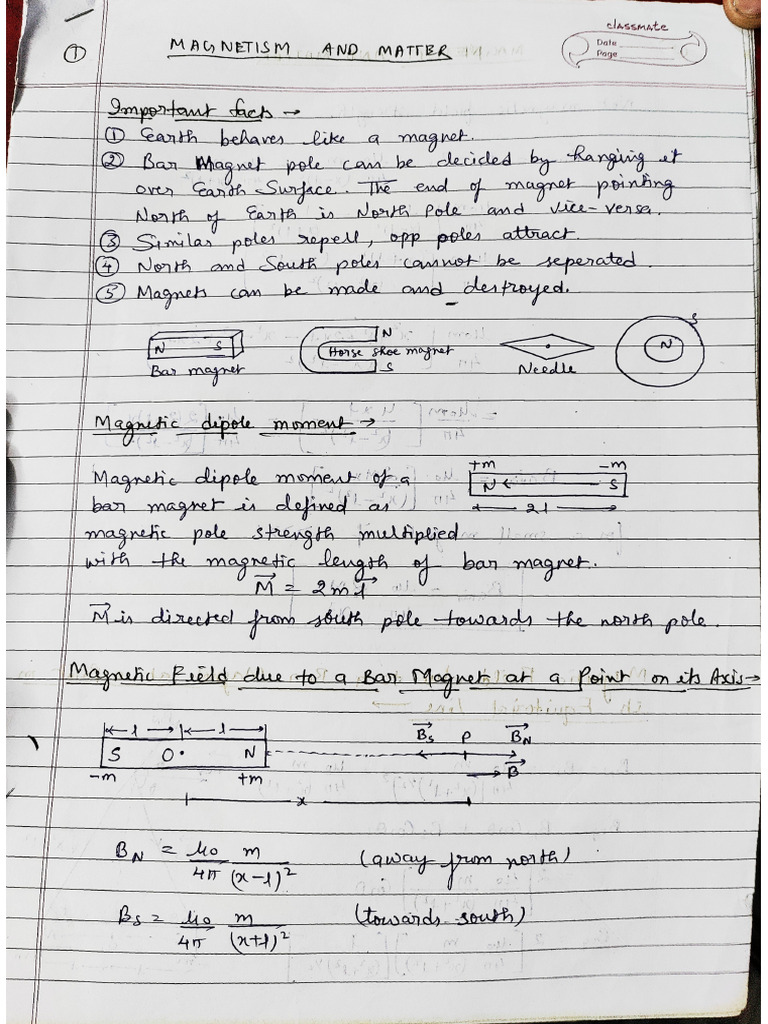 classmate
Date
Page
①
MAGNETISM AND MATTER
Important facts →
① Earth behaves like a magnet.
② Bar Magnet pole can be decided by hanging it
over Earth Surface. The end of magnet pointing
North of Earth is North Pole and vice-versa.
③ Similar poles repell, opp poles attract.
④ North and South poles cannot be seperated.
⑤ Magnets can be made and destroyed.
N S
Bar magnet
N
Horse shoe magnet
S
Needle
S
N
Magnetic dipole moment →
+m -m
N ← S
← 2l →
Magnetic dipole moment of a
bar magnet is defined as
magnetic pole strength multiplied
with the magnetic length of bar magnet.
M⃗ = 2ml⃗
M⃗ is directed from south pole towards the north pole.
Magnetic Field due to a Bar Magnet at a Point on its Axis →
← l → ← l →
S O N
-m +m
B⃗s P B⃗N
B⃗
x
BN = μ0/4π m/(x-l)² (away from north)
Bs = μ0/4π m/(x+l)² (towards south)